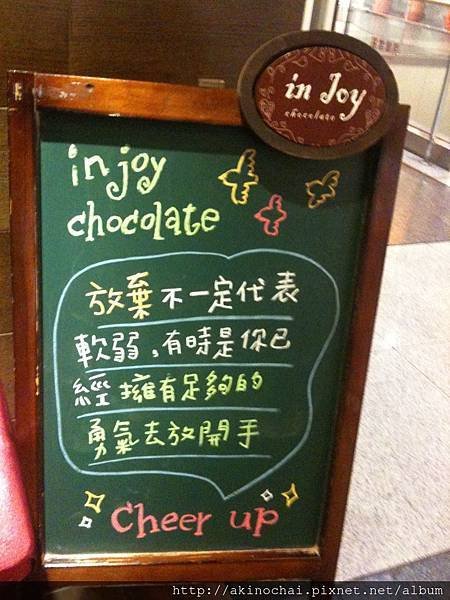 in Joy
chocolate
injoy
chocolate
放棄不一定代表
軟弱,有時是你已
經擁有足夠的
勇氣去放開手
Cheer up
http://akinochai.pixnet.net/album